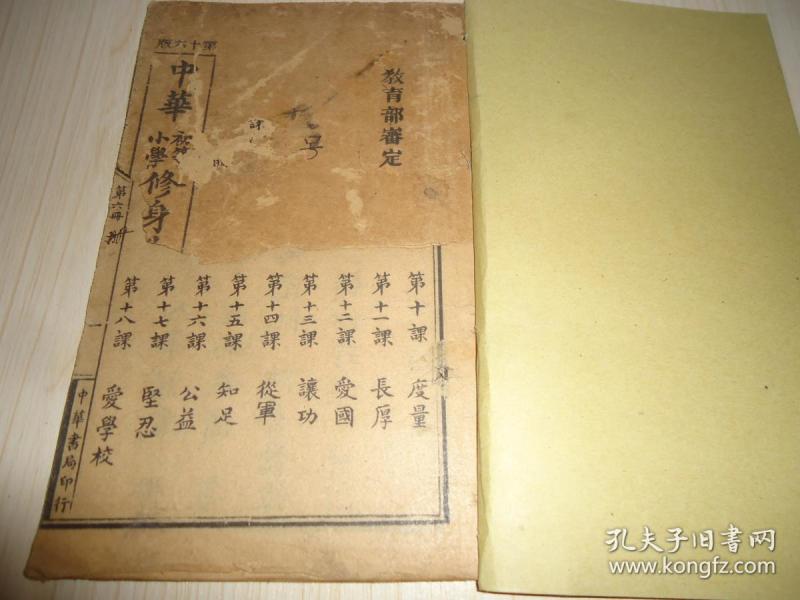 教育部審定
第十六版
中華
小學
修身
第六冊
第十課 度量
第十一課 長厚
第十二課 愛國
第十三課 讓功
第十四課 從軍
第十五課 知足
第十六課 公益
第十七課 堅忍
第十八課 愛學校
一
中華書局印行
孔夫子旧书网
www.kongfz.com